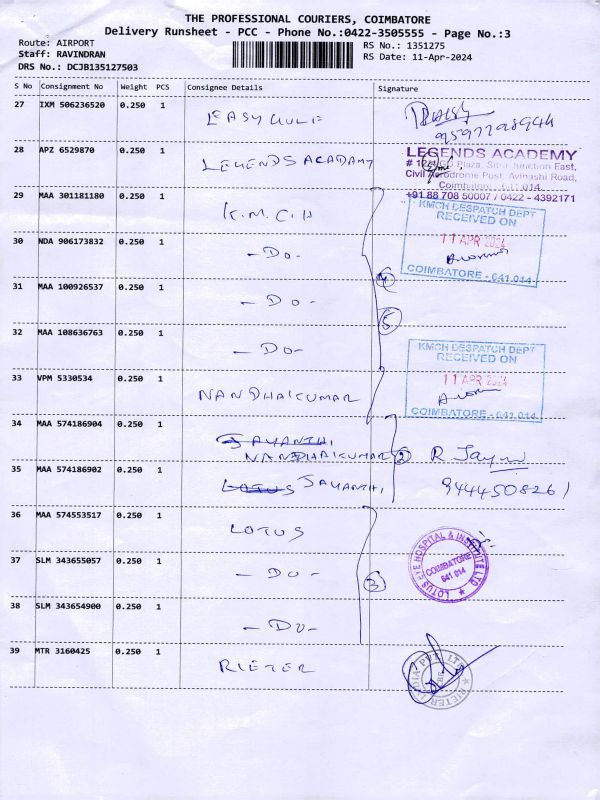 THE PROFESSIONAL COURIERS, COIMBATORE
Delivery Runsheet - PCC - Phone No.:0422-3505555 - Page No.:3
Route: AIRPORT
Staff: RAVINDRAN
DRS No.: DCJB135127503
RS No.: 1351275
RS Date: 11-Apr-2024
S No Consignment No Weight PCS Consignee Details Signature
27 IXM 506236520 0.250 1
28 APZ 6529870 0.250 1 LEGENDS ACADAMY
LEGENDS ACADEMY
Plaza, Sitra Junction East,
Civil Aerodrome Post, Avinashi Road,
Coimbatore - 641 014
+91 88 708 50007 / 0422 - 4392171
29 MAA 301181180 0.250 1 K.M.C.H
KMCH DESPATCH DEPT
RECEIVED ON
11 APR 2024
COIMBATORE - 641 014
30 NDA 906173832 0.250 1 - Do -
31 MAA 100926537 0.250 1 - Do -
4
5
32 MAA 108636763 0.250 1 - Do -
33 VPM 5330534 0.250 1 NANDHAKUMAR
KMCH DESPATCH DEPT
RECEIVED ON
11 APR 2024
COIMBATORE - 641 014
34 MAA 574186904 0.250 1 JAYANTHI
NANDHAKUMAR 2 R Jayanthi
35 MAA 574186902 0.250 1 LOTUS JAYANTHI 9444508261
36 MAA 574553517 0.250 1 LOTUS
LOTUS EYE HOSPITAL & INSTITUTE LTD
COIMBATORE
641 014
37 SLM 343655057 0.250 1 - Do -
3
38 SLM 343654900 0.250 1 - Do -
39 MTR 3160425 0.250 1 RIETER
RIETER INDIA PVT. LTD.